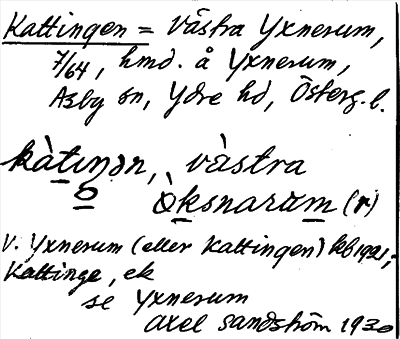 Kattingen = Västra Yxnerum,
7/64, hmd. å Yxnerum,
Asby sn, Ydre hd, Österg. l.
kàtıŋən, vàstra
ò
Òksnarum (r)
V. Yxnerum (eller Kattingen) kb 1921;
Kattinge, ek
se Yxnerum
Axel Sandström 1930